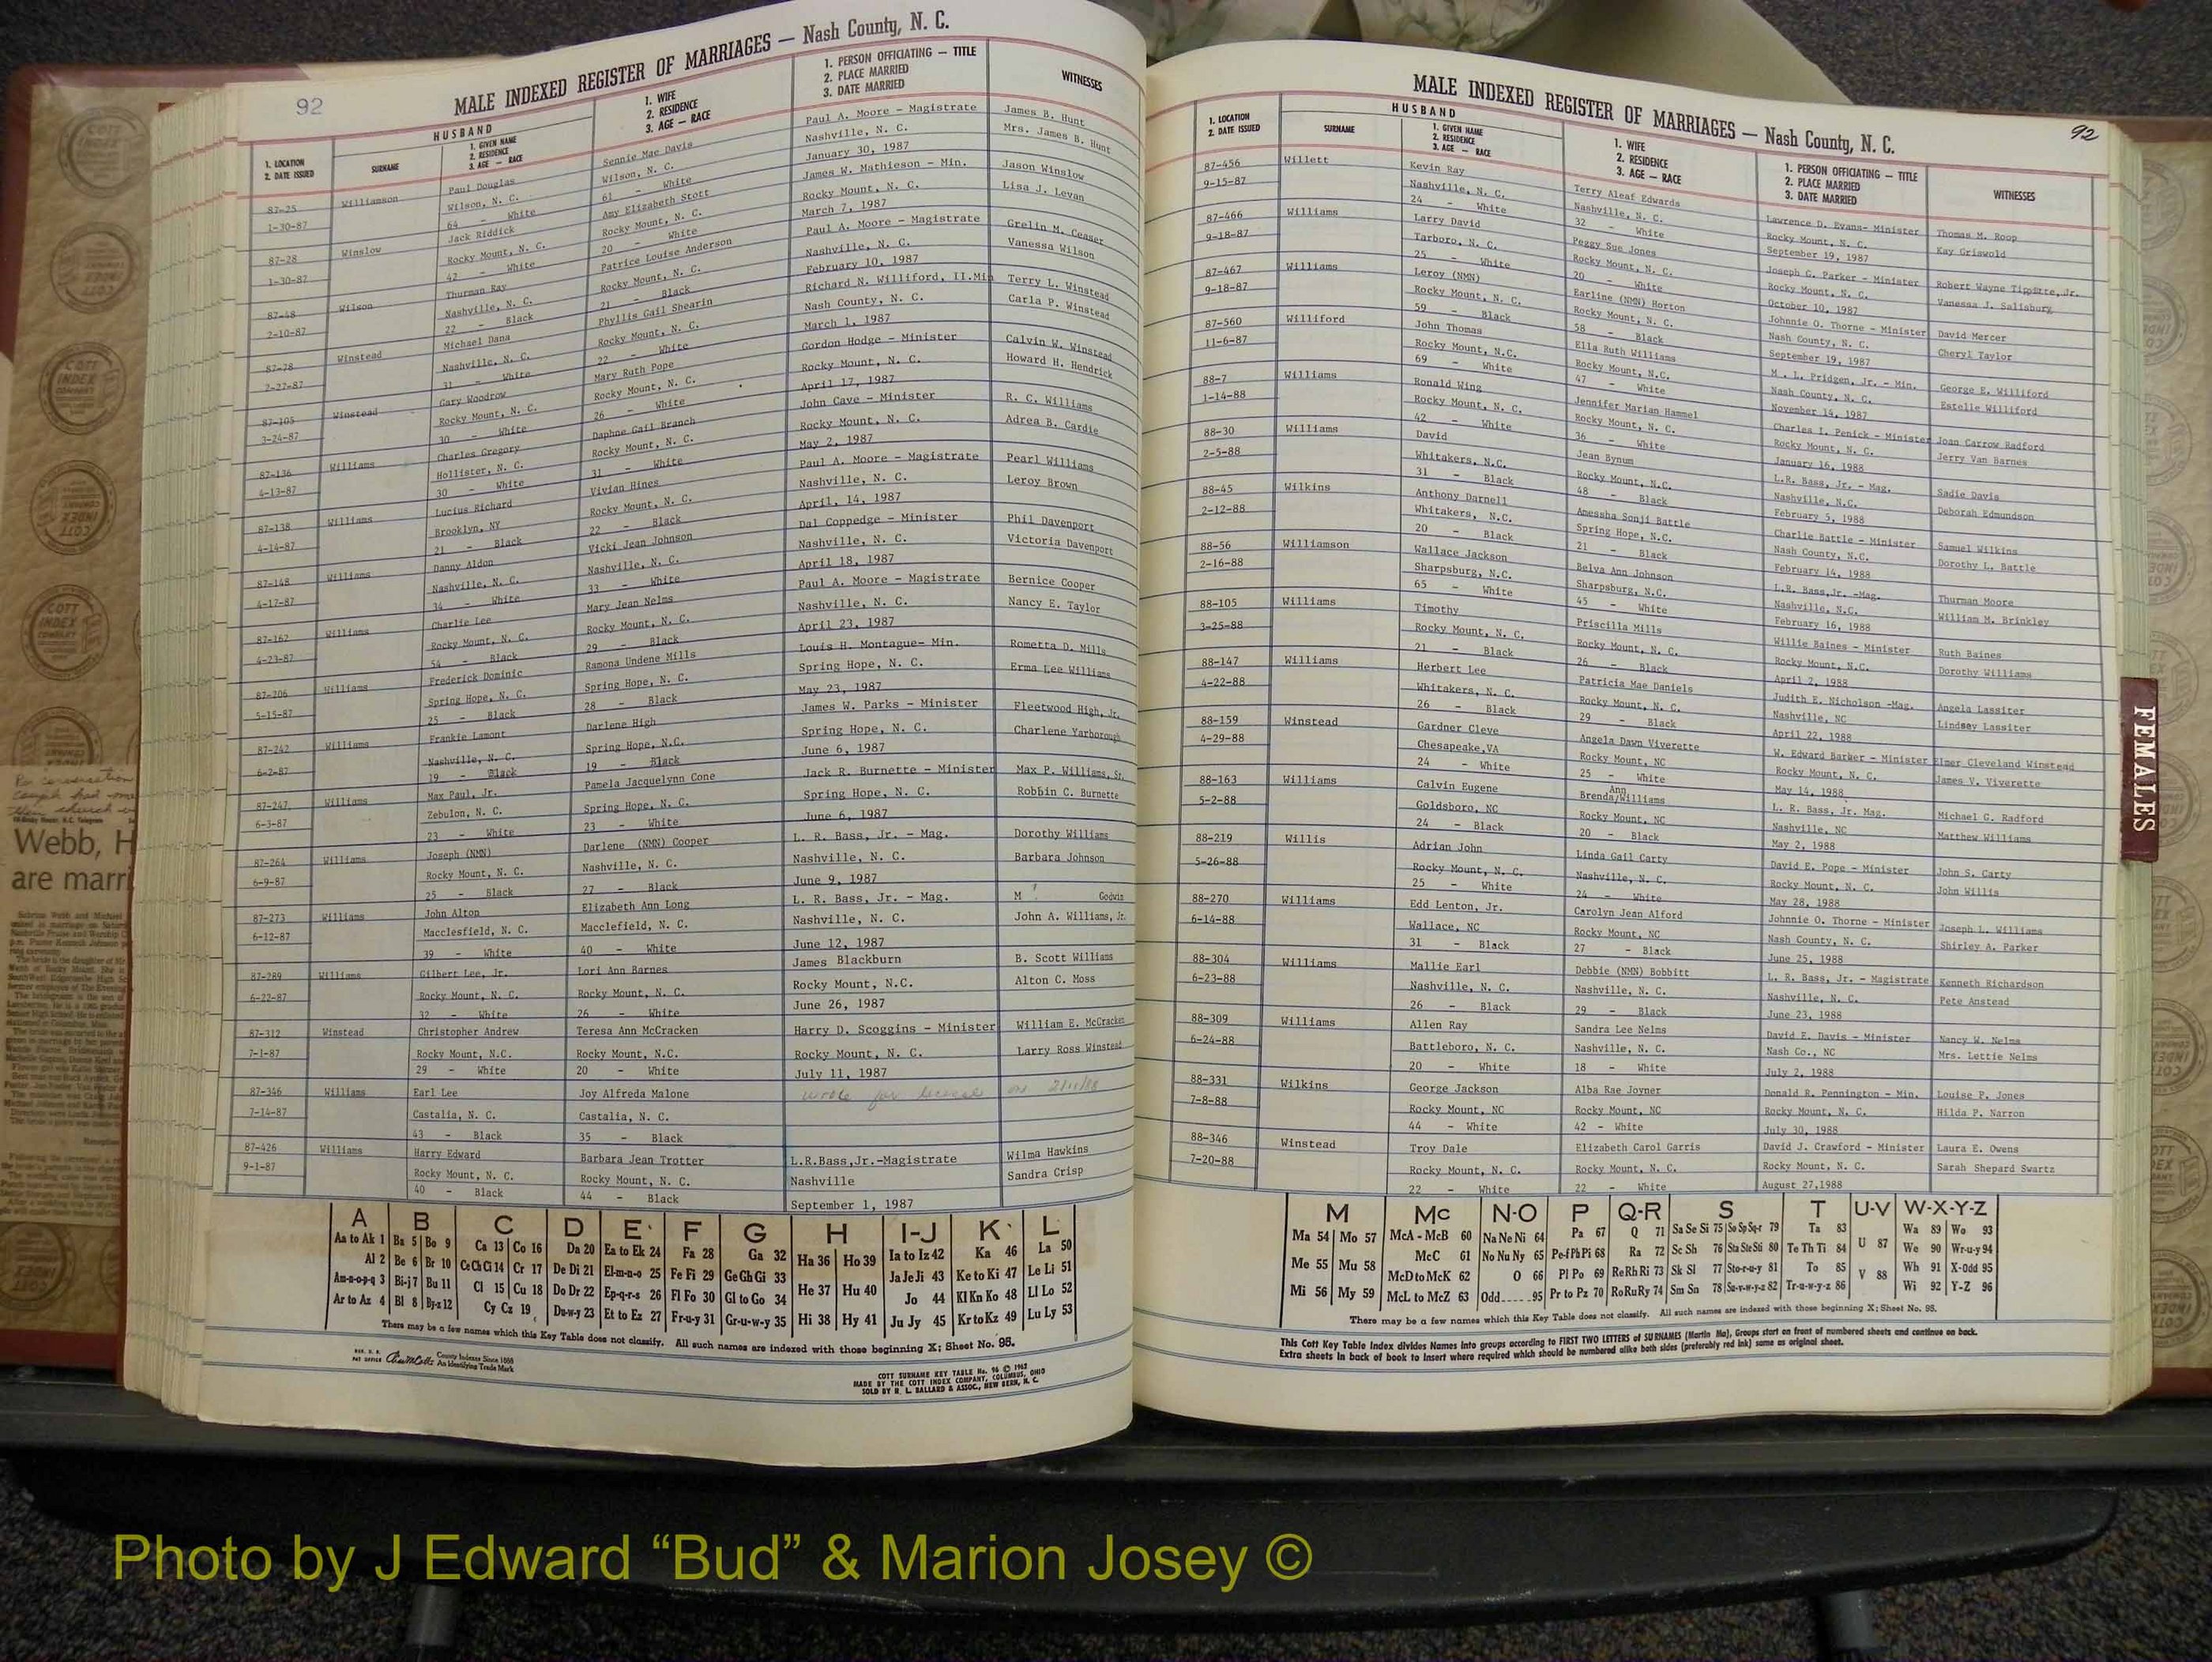 92
MALE INDEXED REGISTER OF MARRIAGES — Nash County, N. C.
1. LOCATION
2. DATE ISSUED
HUSBAND
SURNAME
1. GIVEN NAME
2. RESIDENCE
3. AGE — RACE
1. WIFE
2. RESIDENCE
3. AGE — RACE
1. PERSON OFFICIATING — TITLE
2. PLACE MARRIED
3. DATE MARRIED
WITNESSES
87-25 Williamson Paul Douglas Sennie Mae Davis Paul A. Moore - Magistrate James B. Hunt
1-30-87 Wilson, N. C. Wilson, N. C. Nashville, N. C. Mrs. James B. Hunt
64 - White 61 - White January 30, 1987
87-28 Winslow Jack Riddick Amy Elizabeth Stott James W. Mathieson - Min. Jason Winslow
1-30-87 Rocky Mount, N. C. Rocky Mount, N. C. Rocky Mount, N. C. Lisa J. Levan
42 - White 20 - White March 7, 1987
87-48 Wilson Thurman Ray Patrice Louise Anderson Paul A. Moore - Magistrate Grelin M. Ceaser
2-10-87 Nashville, N. C. Rocky Mount, N. C. Nashville, N. C. Vanessa Wilson
22 - Black 21 - Black February 10, 1987
87-78 Winstead Michael Dana Phyllis Gail Shearin Richard N. Williford, II.Min Terry L. Winstead
2-27-87 Nashville, N. C. Rocky Mount, N. C. Nash County, N. C. Carla P. Winstead
31 - White 22 - White March 1, 1987
87-105 Winstead Gary Woodrow Mary Ruth Pope Gordon Hodge - Minister Calvin W. Winstead
3-24-87 Rocky Mount, N. C. Rocky Mount, N. C. Rocky Mount, N. C. Howard H. Hendrick
30 - White 26 - White April 17, 1987
87-136 Williams Charles Gregory Daphne Gail Branch John Cave - Minister R. C. Williams
4-13-87 Hollister, N. C. Rocky Mount, N. C. Rocky Mount, N. C. Adrea B. Cardie
30 - White 31 - White May 2, 1987
87-138 Williams Lucius Richard Vivian Hines Paul A. Moore - Magistrate Pearl Williams
4-14-87 Brooklyn, NY Rocky Mount, N. C. Nashville, N. C. Leroy Brown
21 - Black 22 - Black April, 14, 1987
87-148 Williams Danny Aldon Vicki Jean Johnson Dal Coppedge - Minister Phil Davenport
4-17-87 Nashville, N. C. Nashville, N. C. Nashville, N. C. Victoria Davenport
34 - White 33 - White April 18, 1987
87-162 Williams Charlie Lee Mary Jean Nelms Paul A. Moore - Magistrate Bernice Cooper
4-23-87 Rocky Mount, N. C. Rocky Mount, N. C. Nashville, N. C. Nancy E. Taylor
54 - Black 29 - Black April 23, 1987
87-206 Williams Frederick Dominic Ramona Undene Mills Louis H. Montague- Min. Rometta D. Mills
5-15-87 Spring Hope, N. C. Spring Hope, N. C. Spring Hope, N. C. Erma Lee Williams
25 - Black 28 - Black May 23, 1987
87-242 Williams Frankie Lamont Darlene High James W. Parks - Minister Fleetwood High, Jr.
6-2-87 Nashville, N. C. Spring Hope, N.C. Spring Hope, N. C. Charlene Yarborough
19 - Black 19 - Black June 6, 1987
87-247 Williams Max Paul, Jr. Pamela Jacquelynn Cone Jack R. Burnette - Minister Max P. Williams, Sr.
6-3-87 Zebulon, N. C. Spring Hope, N. C. Spring Hope, N. C. Robbin C. Burnette
23 - White 23 - White June 6, 1987
87-264 Williams Joseph (NMN) Darlene (NMN) Cooper L. R. Bass, Jr. - Mag. Dorothy Williams
6-9-87 Rocky Mount, N. C. Nashville, N. C. Nashville, N. C. Barbara Johnson
25 - Black 27 - Black June 9, 1987
87-273 Williams John Alton Elizabeth Ann Long L. R. Bass, Jr. - Mag. M Godwin
6-12-87 Macclesfield, N. C. Macclefield, N. C. Nashville, N. C. John A. Williams, Jr.
39 - White 40 - White June 12, 1987
87-289 Williams Gilbert Lee, Jr. Lori Ann Barnes James Blackburn B. Scott Williams
6-22-87 Rocky Mount, N. C. Rocky Mount, N. C. Rocky Mount, N.C. Alton C. Moss
32 - White 26 - White June 26, 1987
87-312 Winstead Christopher Andrew Teresa Ann McCracken Harry D. Scoggins - Minister William E. McCracken
7-1-87 Rocky Mount, N.C. Rocky Mount, N.C. Rocky Mount, N. C. Larry Ross Winstead
29 - White 20 - White July 11, 1987
87-346 Williams Earl Lee Joy Alfreda Malone wrote for license on 2/11/88
7-14-87 Castalia, N. C. Castalia, N. C.
43 - Black 35 - Black
87-426 Williams Harry Edward Barbara Jean Trotter L.R.Bass,Jr.-Magistrate Wilma Hawkins
9-1-87 Rocky Mount, N. C. Rocky Mount, N. C. Nashville Sandra Crisp
40 - Black 44 - Black September 1, 1987
A B C D E F G H I-J K L
Aa to Ak 1 Ba 5 Bo 9 Ca 13 Co 16 Da 20 Ea to Ek 24 Fa 28 Ga 32 Ha 36 Ho 39 Ia to Iz 42 Ka 46 La 50
Al 2 Be 6 Br 10 Ce Ch Ci 14 Cr 17 De Di 21 El-m-n-o 25 Fe Fi 29 Ge Gh Gi 33 He 37 Hu 40 Ja Je Ji 43 Ke to Ki 47 Le Li 51
Am-n-o-p-q 3 Bi-j 7 Bu 11 Cl 15 Cu 18 Do Dr 22 Ep-q-r-s 26 Fl Fo 30 Gl to Go 34 Jo 44 Kl Kn Ko 48 Ll Lo 52
Ar to Az 4 Bl 8 By-z 12 Cy Cz 19 Du-w-y 23 Et to Ez 27 Fr-u-y 31 Gr-u-w-y 35 Hi 38 Hy 41 Ju Jy 45 Kr to Kz 49 Lu Ly 53
There may be a few names which this Key Table does not classify. All such names are indexed with those beginning X; Sheet No. 95.
County Indexes Since 1888
An Identifying Trade Mark
COTT SURNAME KEY TABLE No. 96 © 1962
MADE BY THE COTT INDEX COMPANY, COLUMBUS, OHIO
SOLD BY R. L. BALLARD & ASSOC., NEW BERN, N. C.
MALE INDEXED REGISTER OF MARRIAGES — Nash County, N. C.
92
1. LOCATION
2. DATE ISSUED
HUSBAND
SURNAME
1. GIVEN NAME
2. RESIDENCE
3. AGE — RACE
1. WIFE
2. RESIDENCE
3. AGE — RACE
1. PERSON OFFICIATING — TITLE
2. PLACE MARRIED
3. DATE MARRIED
WITNESSES
87-456 Willett Kevin Ray Terry Aleaf Edwards Lawrence D. Evans- Minister Thomas M. Roop
9-15-87 Nashville, N. C. Nashville, N. C. Rocky Mount, N. C. Kay Griswold
24 - White 32 - White September 19, 1987
87-466 Williams Larry David Peggy Sue Jones Joseph G. Parker - Minister Robert Wayne Tippette, Jr.
9-18-87 Tarboro, N. C. Rocky Mount, N. C. Rocky Mount, N. C. Vanessa J. Salisbury
25 - White 20 - White October 10, 1987
87-467 Williams Leroy (NMN) Earline (NMN) Horton Johnnie O. Thorne - Minister David Mercer
9-18-87 Rocky Mount, N. C. Rocky Mount, N. C. Nash County, N. C. Cheryl Taylor
59 - Black 58 - Black September 19, 1987
87-560 Williford John Thomas Ella Ruth Williams M. L. Pridgen, Jr. - Min. George E. Williford
11-6-87 Rocky Mount, N.C. Rocky Mount, N.C. Nash County, N. C. Estelle Williford
69 - White 47 - White November 14, 1987
88-7 Williams Ronald Wing Jennifer Marian Hammel Charles I. Penick - Minister Joan Carrow Radford
1-14-88 Rocky Mount, N. C. Rocky Mount, N. C. Rocky Mount, N. C. Jerry Van Barnes
42 - White 36 - White January 16, 1988
88-30 Williams David Jean Bynum L.R. Bass, Jr. - Mag. Sadie Davis
2-5-88 Whitakers, N.C. Rocky Mount, N.C. Nashville, N.C. Deborah Edmundson
31 - Black 48 - Black February 5, 1988
88-45 Wilkins Anthony Darnell Amessha Sonji Battle Charlie Battle - Minister Samuel Wilkins
2-12-88 Whitakers, N.C. Spring Hope, N.C. Nash County, N.C. Dorothy L. Battle
20 - Black 21 - Black February 14, 1988
88-56 Williamson Wallace Jackson Belva Ann Johnson L.R. Bass,Jr. -Mag. Thurman Moore
2-16-88 Sharpsburg, N.C. Sharpsburg, N.C. Nashville, N.C. William M. Brinkley
65 - White 45 - White February 16, 1988
88-105 Williams Timothy Priscilla Mills Willie Baines - Minister Ruth Baines
3-25-88 Rocky Mount, N. C. Rocky Mount, N. C. Rocky Mount, N.C. Dorothy Williams
21 - Black 26 - Black April 2, 1988
88-147 Williams Herbert Lee Patricia Mae Daniels Judith E. Nicholson -Mag. Angela Lassiter
4-22-88 Whitakers, N. C. Rocky Mount, N. C. Nashville, NC Lindsey Lassiter
26 - Black 29 - Black April 22, 1988
88-159 Winstead Gardner Cleve Angela Dawn Viverette W. Edward Barker - Minister Elmer Cleveland Winstead
4-29-88 Chesapeake,VA Rocky Mount, NC Rocky Mount, N. C. James V. Viverette
24 - White 25 - White May 14, 1988
88-163 Williams Calvin Eugene Brenda/Ann Williams L. R. Bass, Jr. Mag. Michael G. Radford
5-2-88 Goldsboro, NC Rocky Mount, NC Nashville, NC Matthew Williams
24 - Black 20 - Black May 2, 1988
88-219 Willis Adrian John Linda Gail Carty David E. Pope - Minister John S. Carty
5-26-88 Rocky Mount, N. C. Nashville, N. C. Rocky Mount, N. C. John Willis
25 - White 24 - White May 28, 1988
88-270 Williams Edd Lenton, Jr. Carolyn Jean Alford Johnnie O. Thorne - Minister Joseph L. Williams
6-14-88 Wallace, NC Rocky Mount, NC Nash County, N. C. Shirley A. Parker
31 - Black 27 - Black June 25, 1988
88-304 Williams Mallie Earl Debbie (NMN) Bobbitt L. R. Bass, Jr. - Magistrate Kenneth Richardson
6-23-88 Nashville, N. C. Nashville, N. C. Nashville, N. C. Pete Anstead
26 - Black 29 - Black June 23, 1988
88-309 Williams Allen Ray Sandra Lee Nelms David E. Davis - Minister Nancy W. Nelms
6-24-88 Battleboro, N. C. Nashville, N. C. Nash Co., NC Mrs. Lettie Nelms
20 - White 18 - White July 2, 1988
88-331 Wilkins George Jackson Alba Rae Joyner Donald R. Pennington - Min. Louise P. Jones
7-8-88 Rocky Mount, NC Rocky Mount, NC Rocky Mount, N. C. Hilda P. Narron
44 - White 42 - White July 30, 1988
88-346 Winstead Troy Dale Elizabeth Carol Garris David J. Crawford - Minister Laura E. Owens
7-20-88 Rocky Mount, N. C. Rocky Mount, N. C. Rocky Mount, N. C. Sarah Shepard Swartz
22 - White 22 - White August 27,1988
M Mc N-O P Q-R S T U-V W-X-Y-Z
Ma 54 Mo 57 McA - McB 60 Na Ne Ni 64 Pa 67 Q 71 Sa Se Si 75 So Sp Sq-r 79 Ta 83 U 87 Wa 89 Wo 93
Me 55 Mu 58 McC 61 No Nu Ny 65 Pe-f Ph Pi 68 Ra 72 Sc Sh 76 Sta Ste Sti 80 Te Th Ti 84 We 90 Wr-u-y 94
McD to McK 62 O 66 Pl Po 69 Re Rh Ri 73 Sk Sl 77 Sto-r-u-y 81 To 85 V 88 Wh 91 X-Odd 95
Mi 56 My 59 McL to McZ 63 Odd 95 Pr to Pz 70 Ro Ru Ry 74 Sm Sn 78 Su-v-w-y-z 82 Tr-u-w-y-z 86 Wi 92 Y-Z 96
There may be a few names which this Key Table does not classify. All such names are indexed with those beginning X; Sheet No. 95.
This Cott Key Table Index divides Names into groups according to FIRST TWO LETTERS of SURNAMES (Martin Ma), Groups start on front of numbered sheets and continue on back.
Extra sheets in back of book to insert where required which should be numbered alike both sides (preferably red ink) same as original sheet.
FEMALES
Webb, H
are marri
Photo by J Edward “Bud” & Marion Josey ©